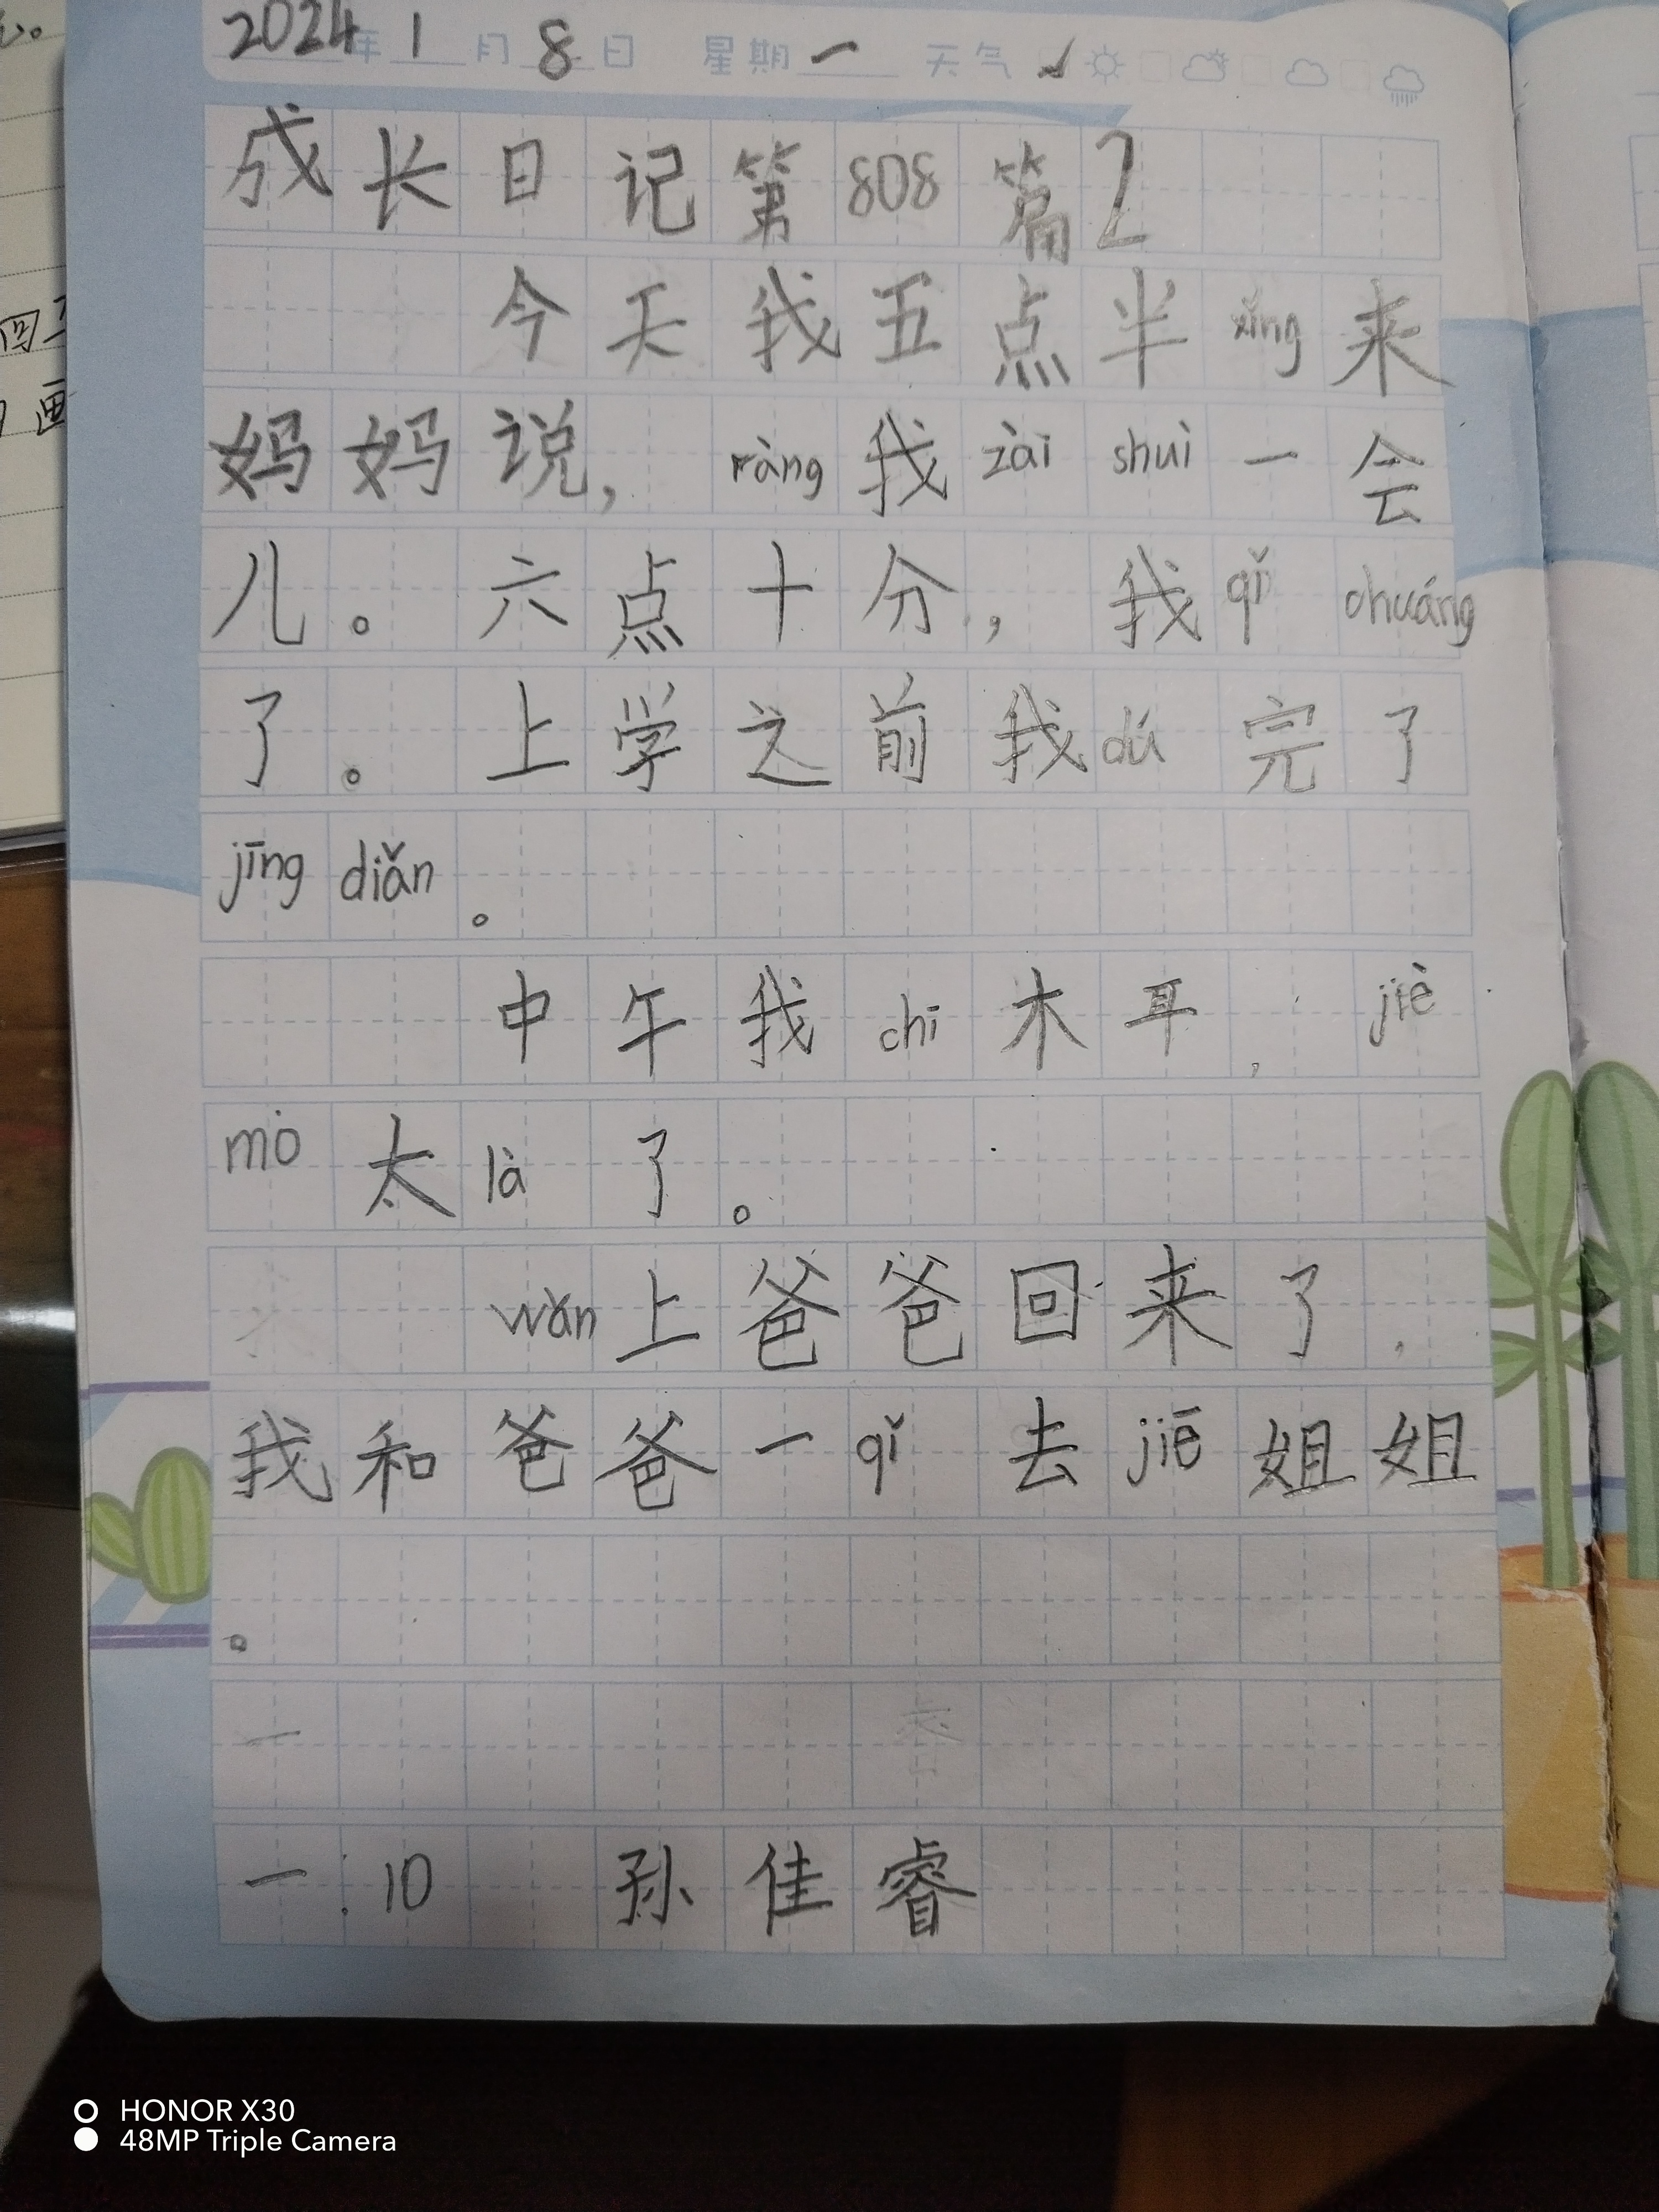 2024年1月8日 星期一 天气 ✓
成长日记第808篇2
今天我五点半xǐng来
妈妈说，ràng我zài shuì一会
儿。六点十分，我qǐ chuáng
了。上学之前我dú完了
jīng diǎn。
中午我chī木耳，jiè
mò太là了。
wǎn上爸爸回来了，
我和爸爸一qǐ去jiē姐姐
。
一
一.10 孙佳睿
四
画
HONOR X30
48MP Triple Camera